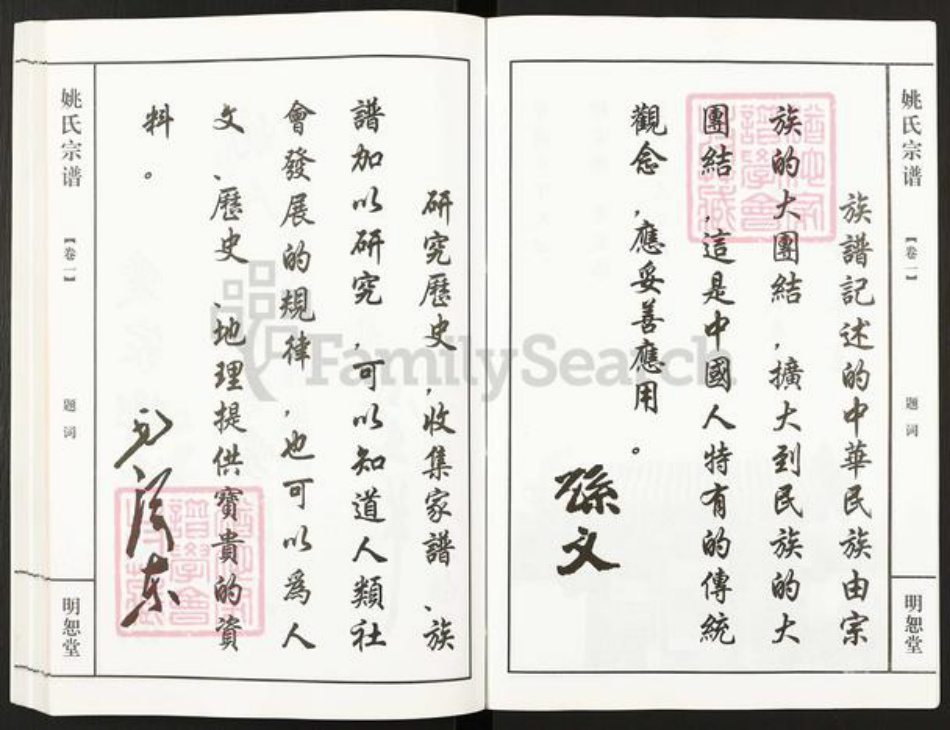 姚氏宗谱
【卷一】
题词
明恕堂
族譜記述的中華民族由宗
族的大團結，擴大到民族的大
團結，這是中國人特有的傳統
觀念，應妥善應用。
孫文
研究歷史，收集家譜、族
譜加以研究，可以知道人類社
會發展的規律，也可以為人
文、歷史、地理提供寶貴的資
料。
毛澤东
姚氏宗谱
【卷一】
题词
明恕堂
FamilySearch